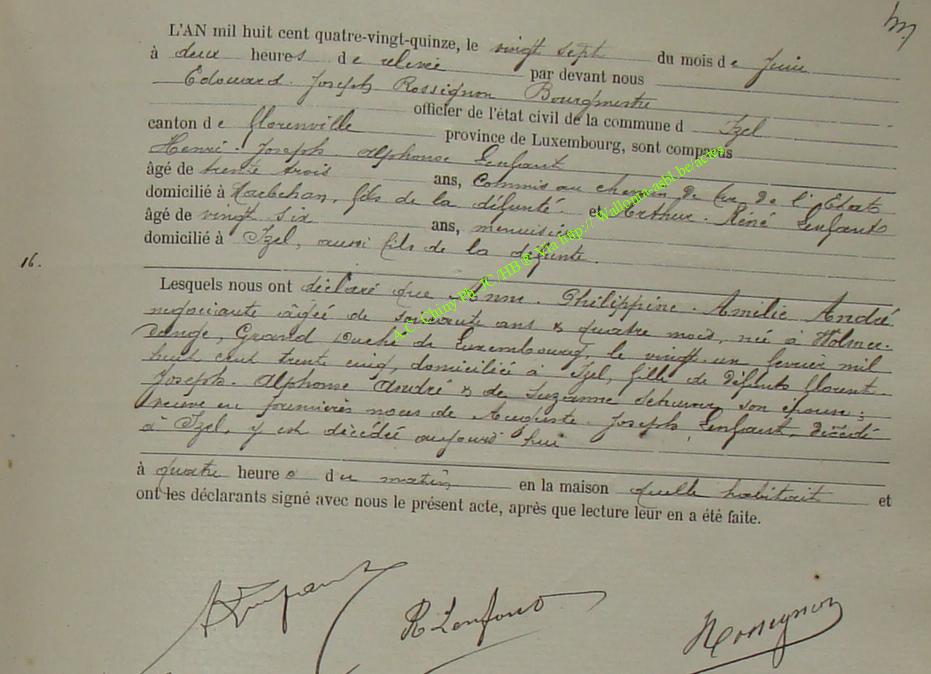 L'AN mil huit cent quatre-vingt-quinze, le vingt sept du mois de Juin
à deux heures de relevée par devant nous
Edouard Joseph Rossignon Bourgmestre
officier de l'état civil de la commune d Izel
canton de florenville province de Luxembourg, sont comparus
Henri Joseph Alphonse Lenfant
âgé de trente trois ans, Commis au chemin de fer de l'Etat
domicilié à fils de la défunte et Arthur René Lenfant
âgé de vingt six ans, menuisier
domicilié à Izel, aussi fils de la défunte.
16.
Lesquels nous ont déclaré que Anne Philippine Amélie André
négociante âgée de soixante ans & quatre mois, née à Wolmer-
dange, Grand Duché de Luxembourg, le vingt un fevrier mil
huit cent trente cinq, domiciliée à Izel, fille de défunts florent
Joseph Alphonse André & de Suzanne son épouse;
veuve en premières noces de Auguste Joseph Lenfant, décédé
à Izel, y est décédée aujourd'hui
à quatre heures du matin en la maison quelle habitait et
ont les déclarants signé avec nous le présent acte, après que lecture leur en a été faite.
A Lenfant R Lenfant Rossignon
A.C. Chiny Ph. JC /HB @ Via http://Wallonia-asbl.be/actes